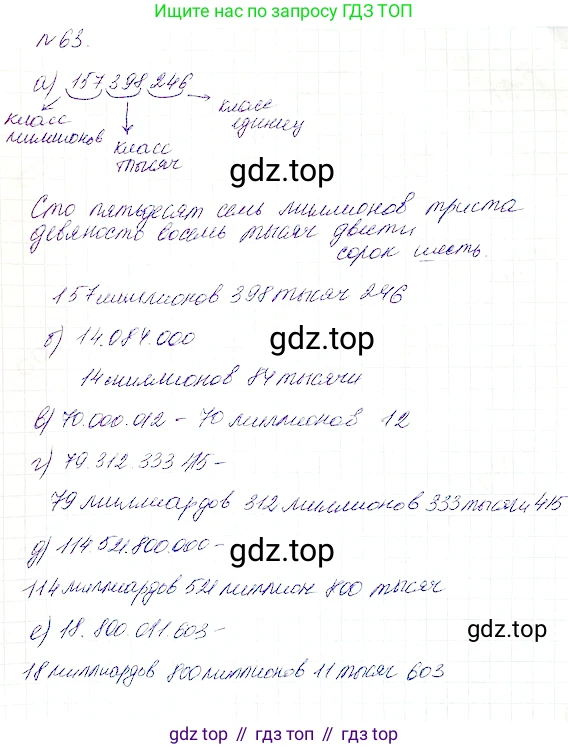 Ищите нас по запросу ГДЗ ТОП
№63.
а) 157 398 246
класс миллионов
класс тысяч
класс единиц
gdz.top
Сто пятьдесят семь миллионов триста
девяносто восемь тысяч двести
сорок шесть.
157 миллионов 398 тысяч 246
б) 14.084.000
gdz.top
14 миллионов 84 тысячи
в) 70.000.012 - 70 миллионов 12
г) 79.312.333 415 -
79 миллиардов 312 миллионов 333 тысячи 415
д) 114.521.800.000 -
gdz.top
114 миллиардов 521 миллион 800 тысяч
е) 18.800.011.603 -
gdz.top
18 миллиардов 800 миллионов 11 тысяч 603
gdz.top // гдз топ // gdz.top